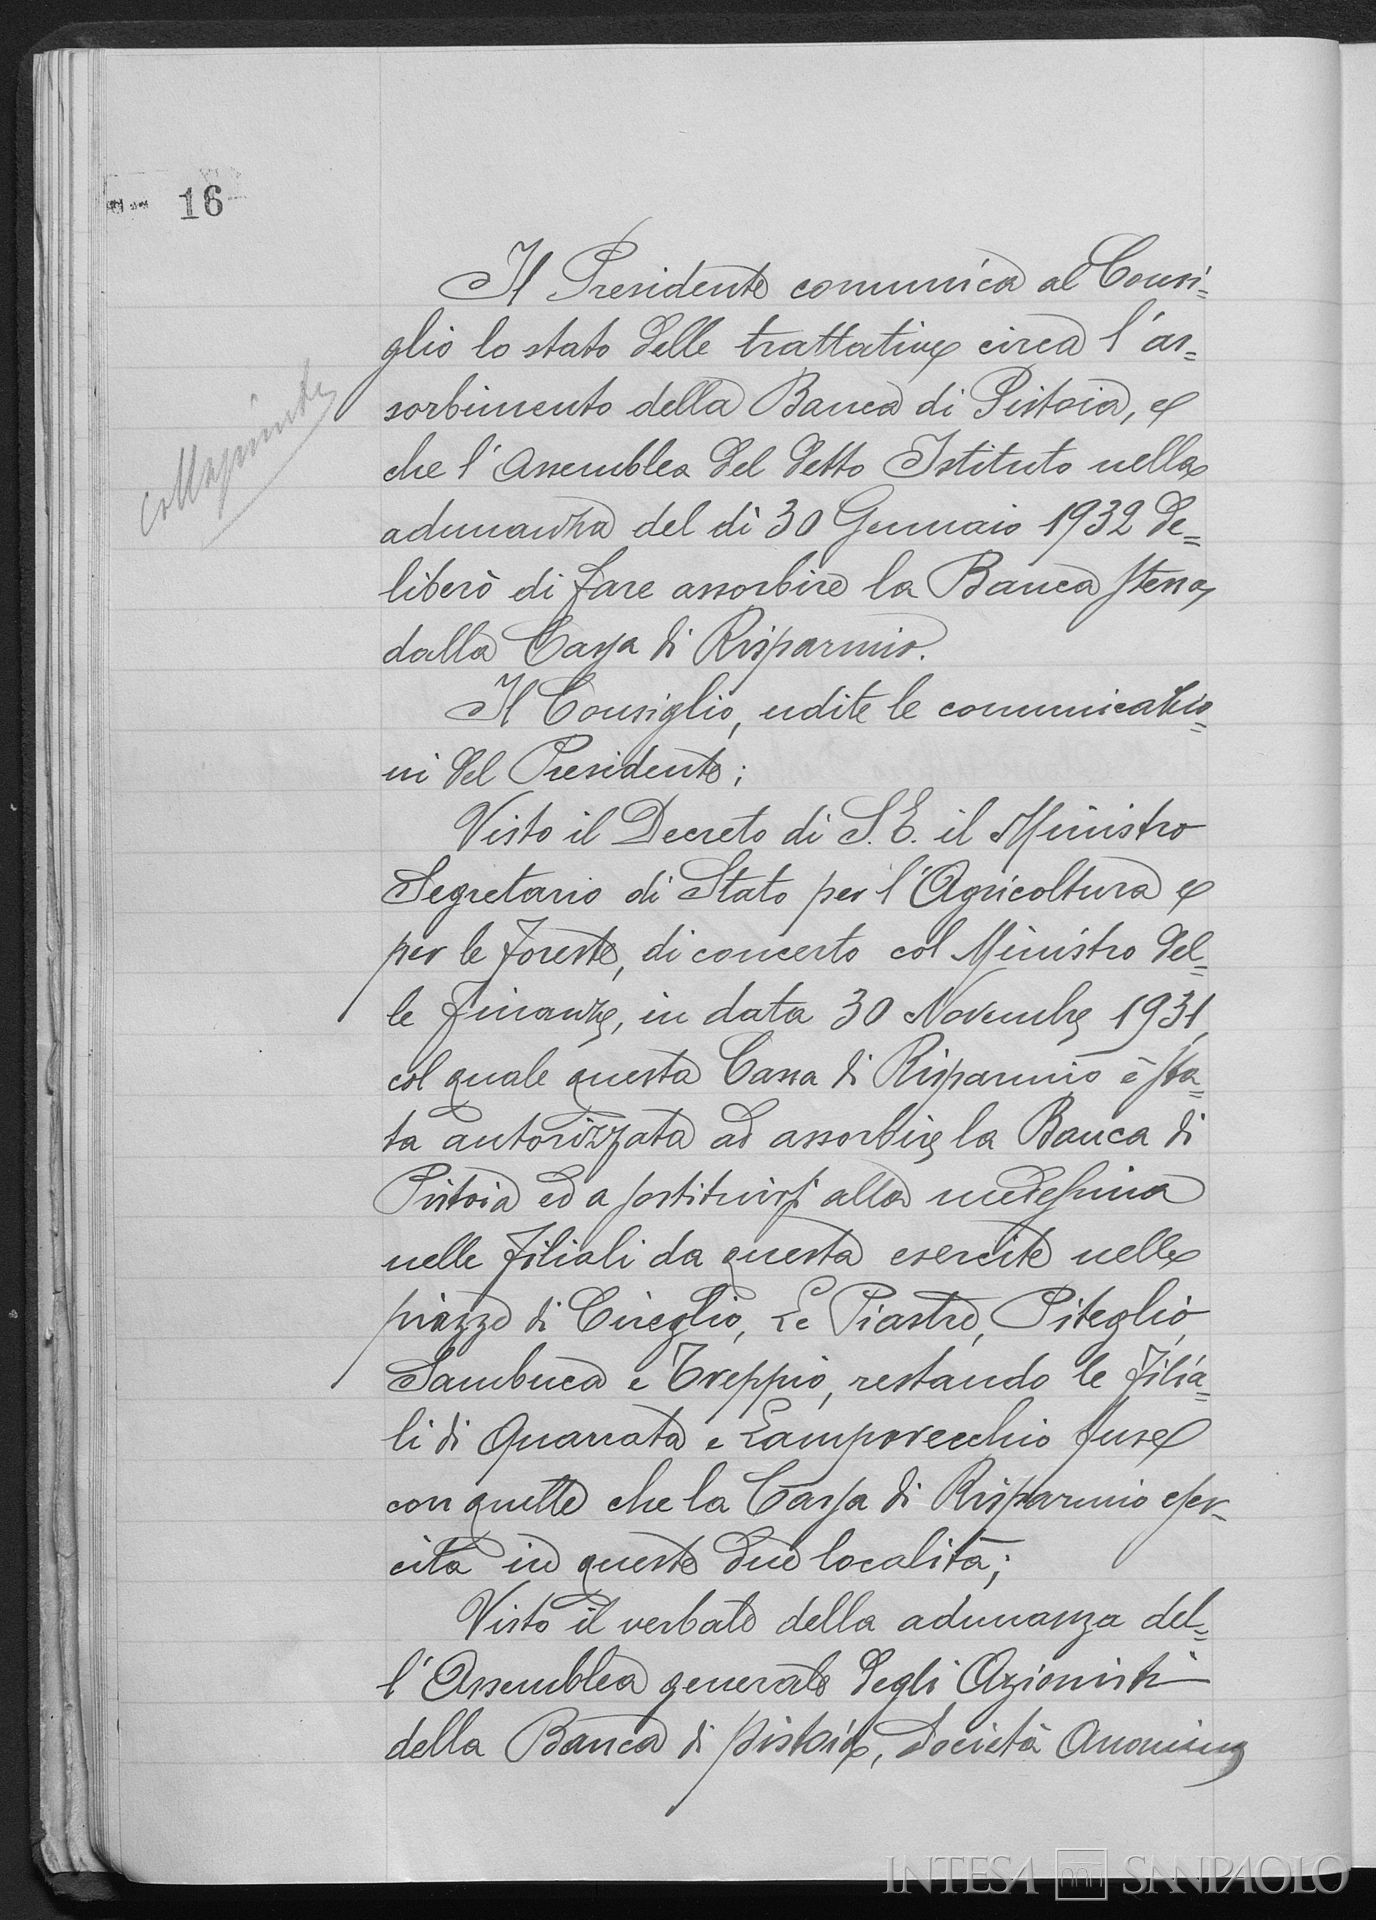 16
Il Presidente comunica al Consi=
glio lo stato delle trattative circa l'as=
sorbimento della Banca di Pistoia, e
che l'Assemblea del detto Istituto nella
adunanza del dì 30 Gennaio 1932 de=
liberò di fare assorbire la Banca stessa
dalla Cassa di Risparmio.
Il Consiglio, udite le comunicazio=
ni del Presidente;
Visto il Decreto di S.E. il Ministro
Segretario di Stato per l'Agricoltura e
per le foreste, di concerto col Ministro del=
le Finanze, in data 30 Novembre 1931,
col quale questa Cassa di Risparmio è sta=
ta autorizzata ad assorbire la Banca di
Pistoia ed a sostituirsi alla medesima
nelle filiali da questa esercite nelle
piazze di Cireglio, Le Piastre, Piteglio,
Sambuca e Treppio, restando le filia=
li di Quarrata e Lamporecchio fuse
con quelle che la Cassa di Risparmio eser=
cita in queste due località;
Visto il verbale della adunanza del=
l'Assemblea generale degli Azionisti
della Banca di Pistoia, Società Anonima
INTESA SANPAOLO